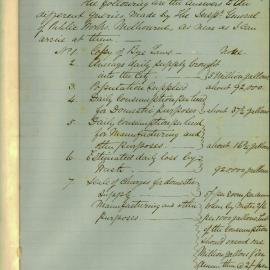 the following are the answers to the
different queries, made by the Supt. General
of Public Works. Melbourne, as near as I can
arrive at them
No 1 Copy of Bye Laws - None.
2 Average daily supply brought
into the City - 5 Million gallons
3 Population Supplied about 92,000.
4 Daily Consumption per head
for Domestic purposes - about 37½ gallons
5 Daily Consumption per head
for Manufacturing and
other purposes - about 16½ gallons
6 Estimated daily loss by
Waste - 92000 gallons
7 Scale of Charges for domestic
Supply
Manufacturing and other
purposes
per room per annum
by Meter
per 1000 gallons
of the Consumption
should exceed one
Million gallons